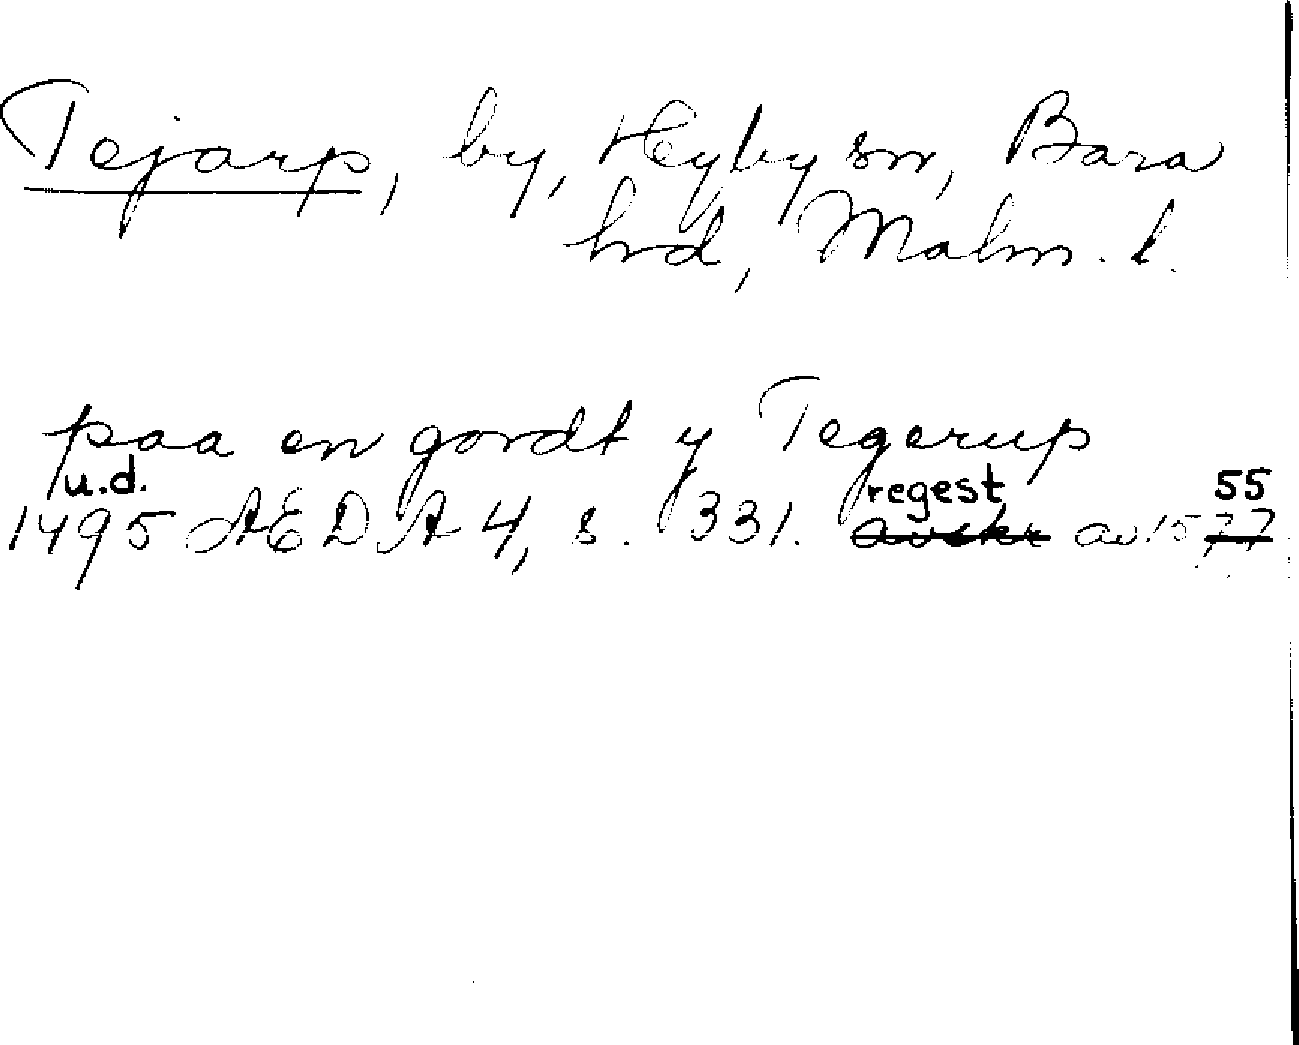 Tejarp, by, Hyby sn, Bara
hd, Malm. l.
paa en gordt y Tegerup
u.d. regest 55
1495 ÆDA 4, s. 331. avskr av 1577